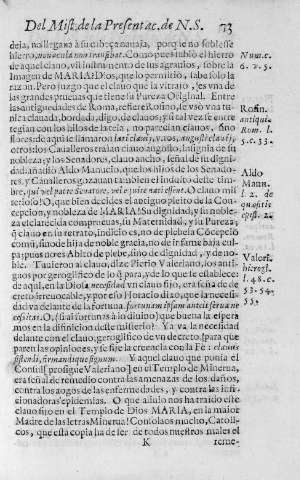 Del Mist. de la Presentac. de N.S. 73
deja, no llegarà à su cabeça navaja, porq́ le no subiesse
hierro, novacula non transibit. Como pues subiò el hierro
de aquel clavo, vil instrumento de agravios, sobre la
Imagen de MARIA? Dios, que lo permitiò, sabe solo la
razon. Pero juzgo que el clavo que la vltrajò, es vna de
las grandes pruebas que tiene su Pureza Original. Entre
las antiguedades de Roma, refiere Rosino, se vsò vna tu-
nica clavada, bordada, digo, de clavos; y si tal vez se entre
tegian con los hilos de la tela, no parecian clavos, sino
flores, de aquì se llamaron lati clavi, y otros, angusti clavi,
otros: los Cavalleros traìan clavo angosto, insignia de su
nobleza; y los Senadores, clavo ancho, señal de su digni-
dad; añadiò Aldo Manucio, que los hijos de los Senadores,
y Cavalleros, gozavan tambien el indulto de este timbre,
qui vel patre Senatore, vel equite nati essent. O clavo mis
terioso! O, que bien decides el antiguo pleito de la Con-
cepcion, y nobleza de MARIA! Su dignidad, y su noble-
za esclarecida compruevas, su Maternidad, y su Pureza;
q́ clavo en su retrato, indicio es, no de plebeia Cõcepciò
comũ, sino de hija de noble gracia, no de infame baja cul
pa; pues no es Abito de plebe, sino de dignidad, y de no-
ble. Tuvieron al clavo, dize Pierio Valeriano, los anti-
guos por geroglifico de lo q́ para, y de lo que se establece:
de aquì, en la Diosa necesidad vn clavo fijo, era señal de de
creto irrevocable, y por esso Horacio dixo, que la necesi-
dad va delante de la fortuna, fortunam ipsam anteit sæva ne
cessitas. O, (si al fortunas à lo divino) que buena la espera
mos en la difinicion deste misterio? Ya va la necesidad
delante con el clavo; geroglifico de vn decreto, para que
paren las opiniones, y se fije la creencia con la Fè: clavus
sistendi, firmandi que signum. Y aquel clavo que ponìa el
Consul (prosigue Valeriano) en el Templo de Minerva,
era señal de remedio contra las amenazas de los daños,
contra los azogues de las enfermedades, y contra las infi-
cionadoras epidemias. O que alivio nos ha traìdo este
clavo fijo en el Templo de Dios MARIA, en la maior
Madre de las letras Minerva! Consolaos mucho, Catoli-
cos, que esta copia ha de ser de todos nuestros males el
K reme-
Num. c.
6. v. 5.
Rosin.
antiqui.
Rom. l.
5. c. 33.
Aldo
Manu.
l. 2. de
quæsitis
epist. 2.
Valeri.
hierogl.
l. 48. c.
53. 54.
55.